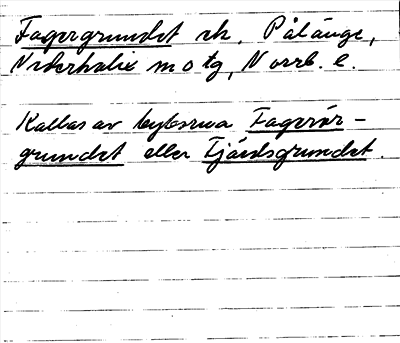 Fagergrundet sk, Pålänge,
Nederkalix sn o tg, Norrb. l.
Kallas av byborna Fagerör-
grundet eller Fjärdsgrundet.